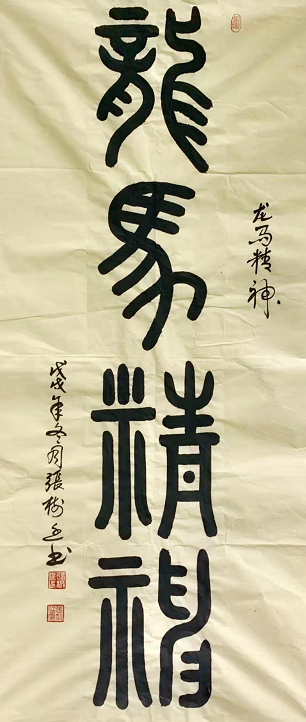 龍馬精神
龙马精神
戊戌年冬月張樹
书